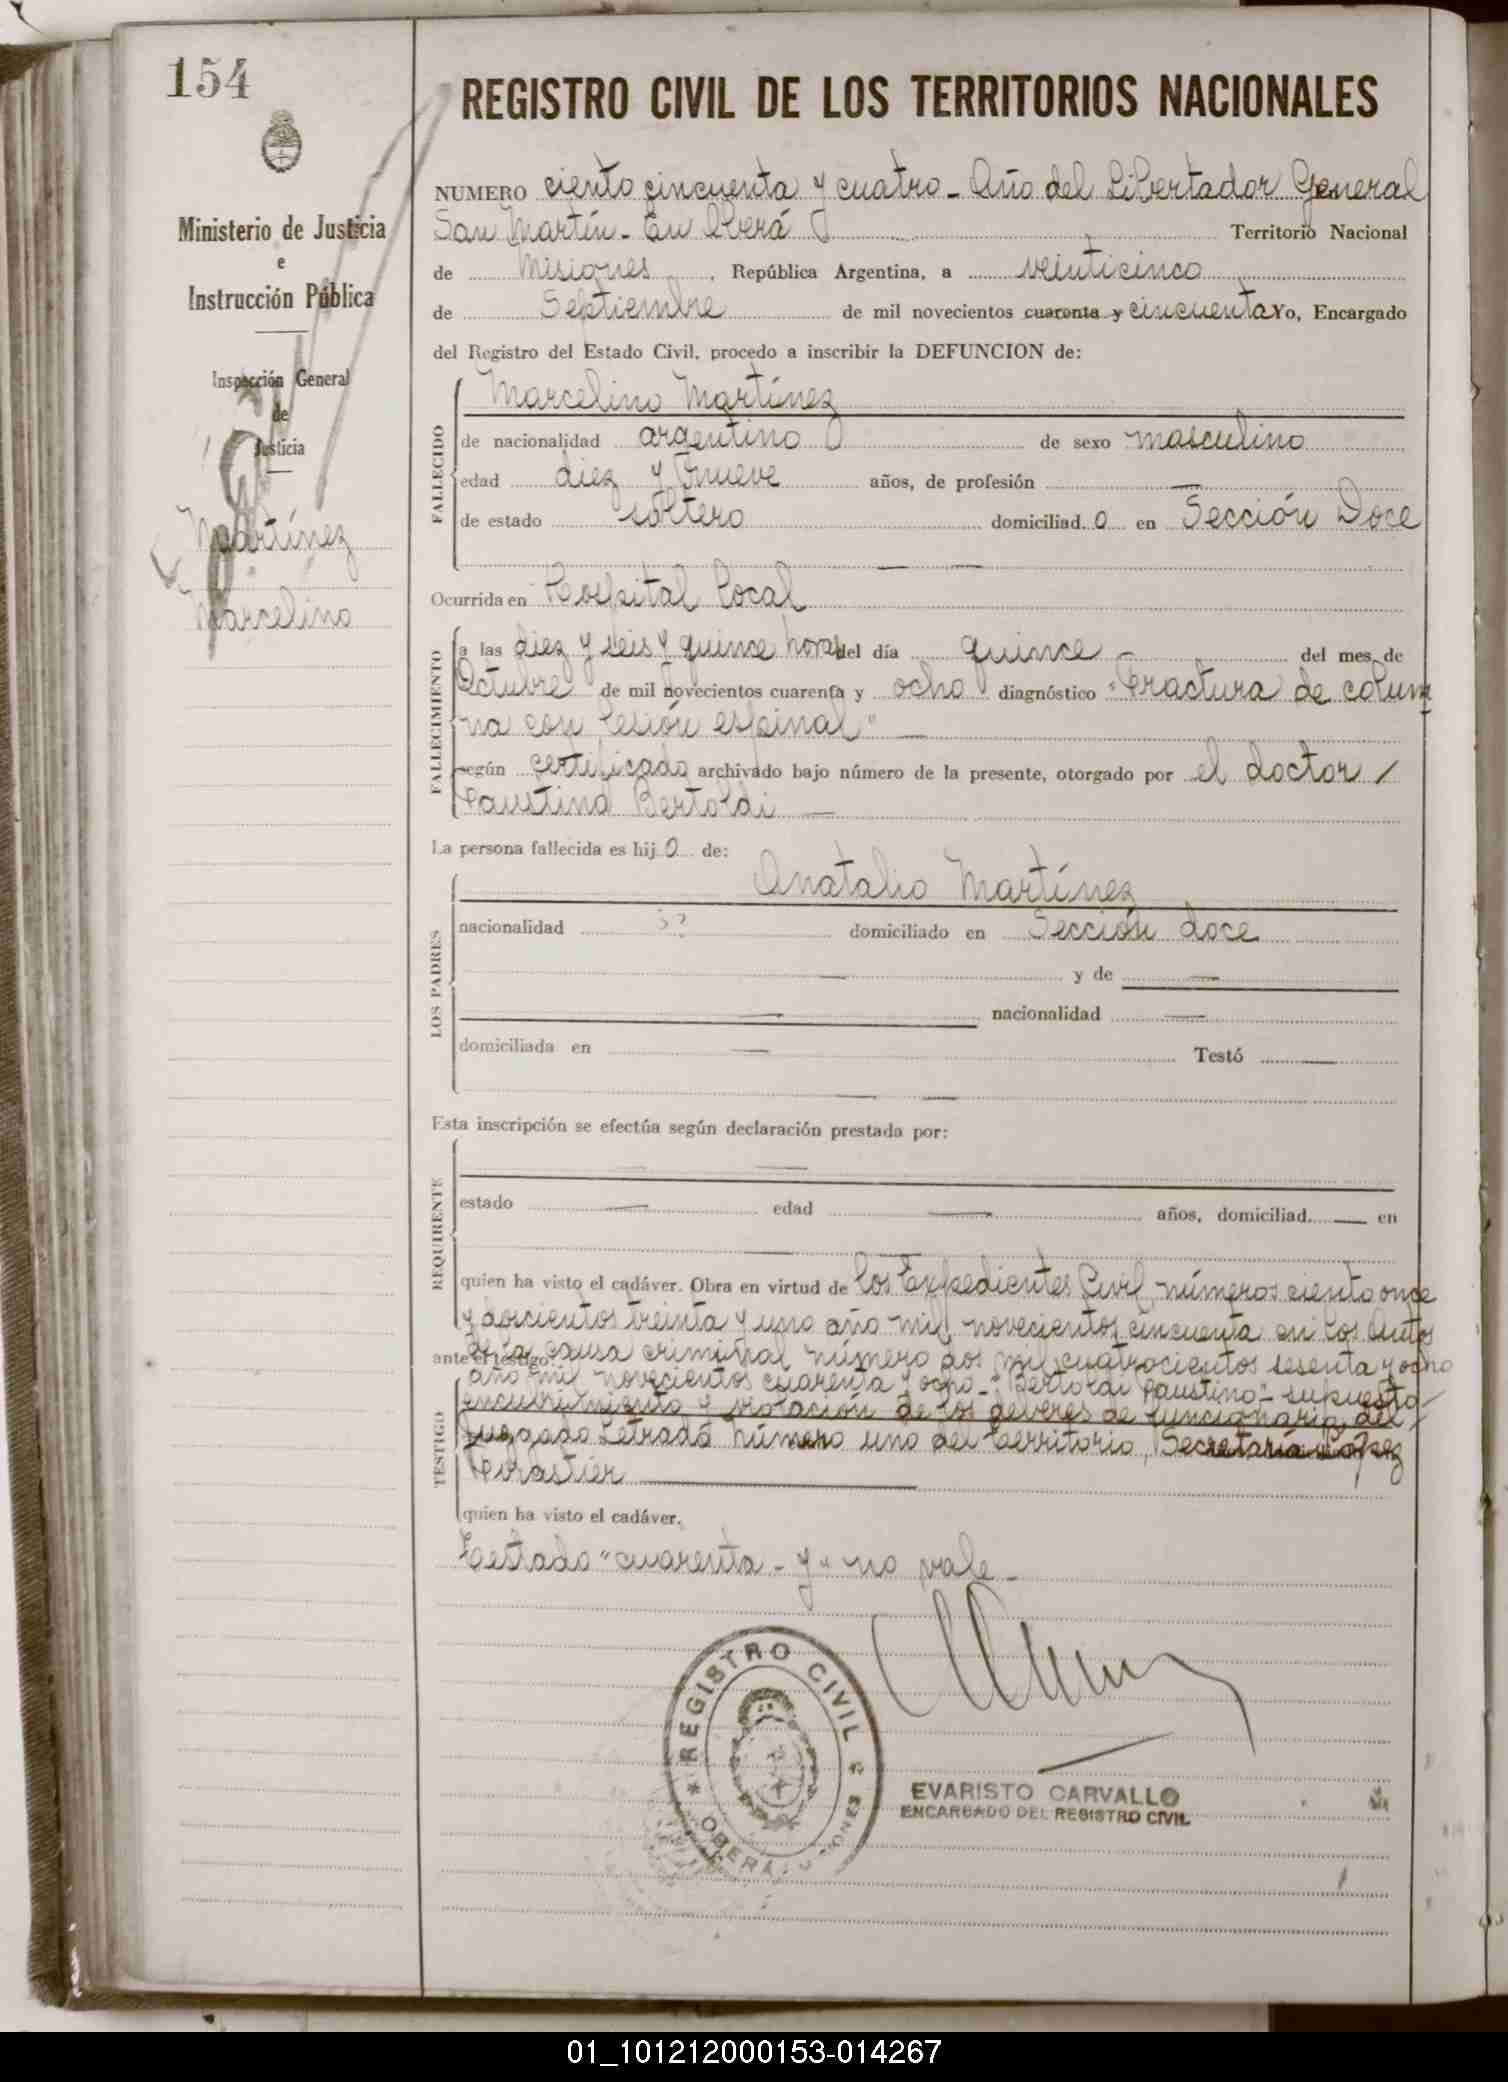 154
REGISTRO CIVIL DE LOS TERRITORIOS NACIONALES
Ministerio de Justicia
e
Instrucción Pública
Inspección General
de
Justicia
Martínez
Marcelino
NUMERO ciento cincuenta y cuatro - Año del Libertador General
San Martín - En Oberá Territorio Nacional
de Misiones, República Argentina, a veinticinco
de Septiembre de mil novecientos cuarenta y cincuenta Yo, Encargado
del Registro del Estado Civil, procedo a inscribir la DEFUNCION de:
FALLECIDO
Marcelino Martínez
de nacionalidad argentino de sexo masculino
edad diez y nueve años, de profesión —
de estado soltero domiciliad o en Sección Doce
— —
Ocurrida en Hospital Local
FALLECIMIENTO
a las diez y seis y quince horas del día quince - del mes de
Octubre de mil novecientos cuarenta y ocho diagnóstico "Fractura de colum
na con lesión espinal" —
según certificado archivado bajo número de la presente, otorgado por el doctor /
Faustino Bertoldi —
La persona fallecida es hij o de:
LOS PADRES
Anatalio Martínez
nacionalidad domiciliado en Sección doce
— y de —
— nacionalidad —
domiciliada en — Testó —
— —
Esta inscripción se efectúa según declaración prestada por:
REQUIRENTE
— —
estado — edad — años, domiciliad — en
—
quien ha visto el cadáver. Obra en virtud de los Expedientes Civil números ciento once
y doscientos treinta y uno año mil novecientos cincuenta en los Autos
de la causa criminal número dos mil cuatrocientos sesenta y ocho
ante el testigo:
año mil novecientos cuarenta y ocho - "Bertoldi Faustino - supuesto
TESTIGO
encubrimiento y violación de los deberes de funcionario, del
Juzgado Letrado número uno del territorio, Secretaría López
Forastier
quien ha visto el cadáver.
Testado "cuarenta - y" no vale -
REGISTRO CIVIL
OBERA
EVARISTO CARVALLO
ENCARGADO DEL REGISTRO CIVIL
01_101212000153-014267